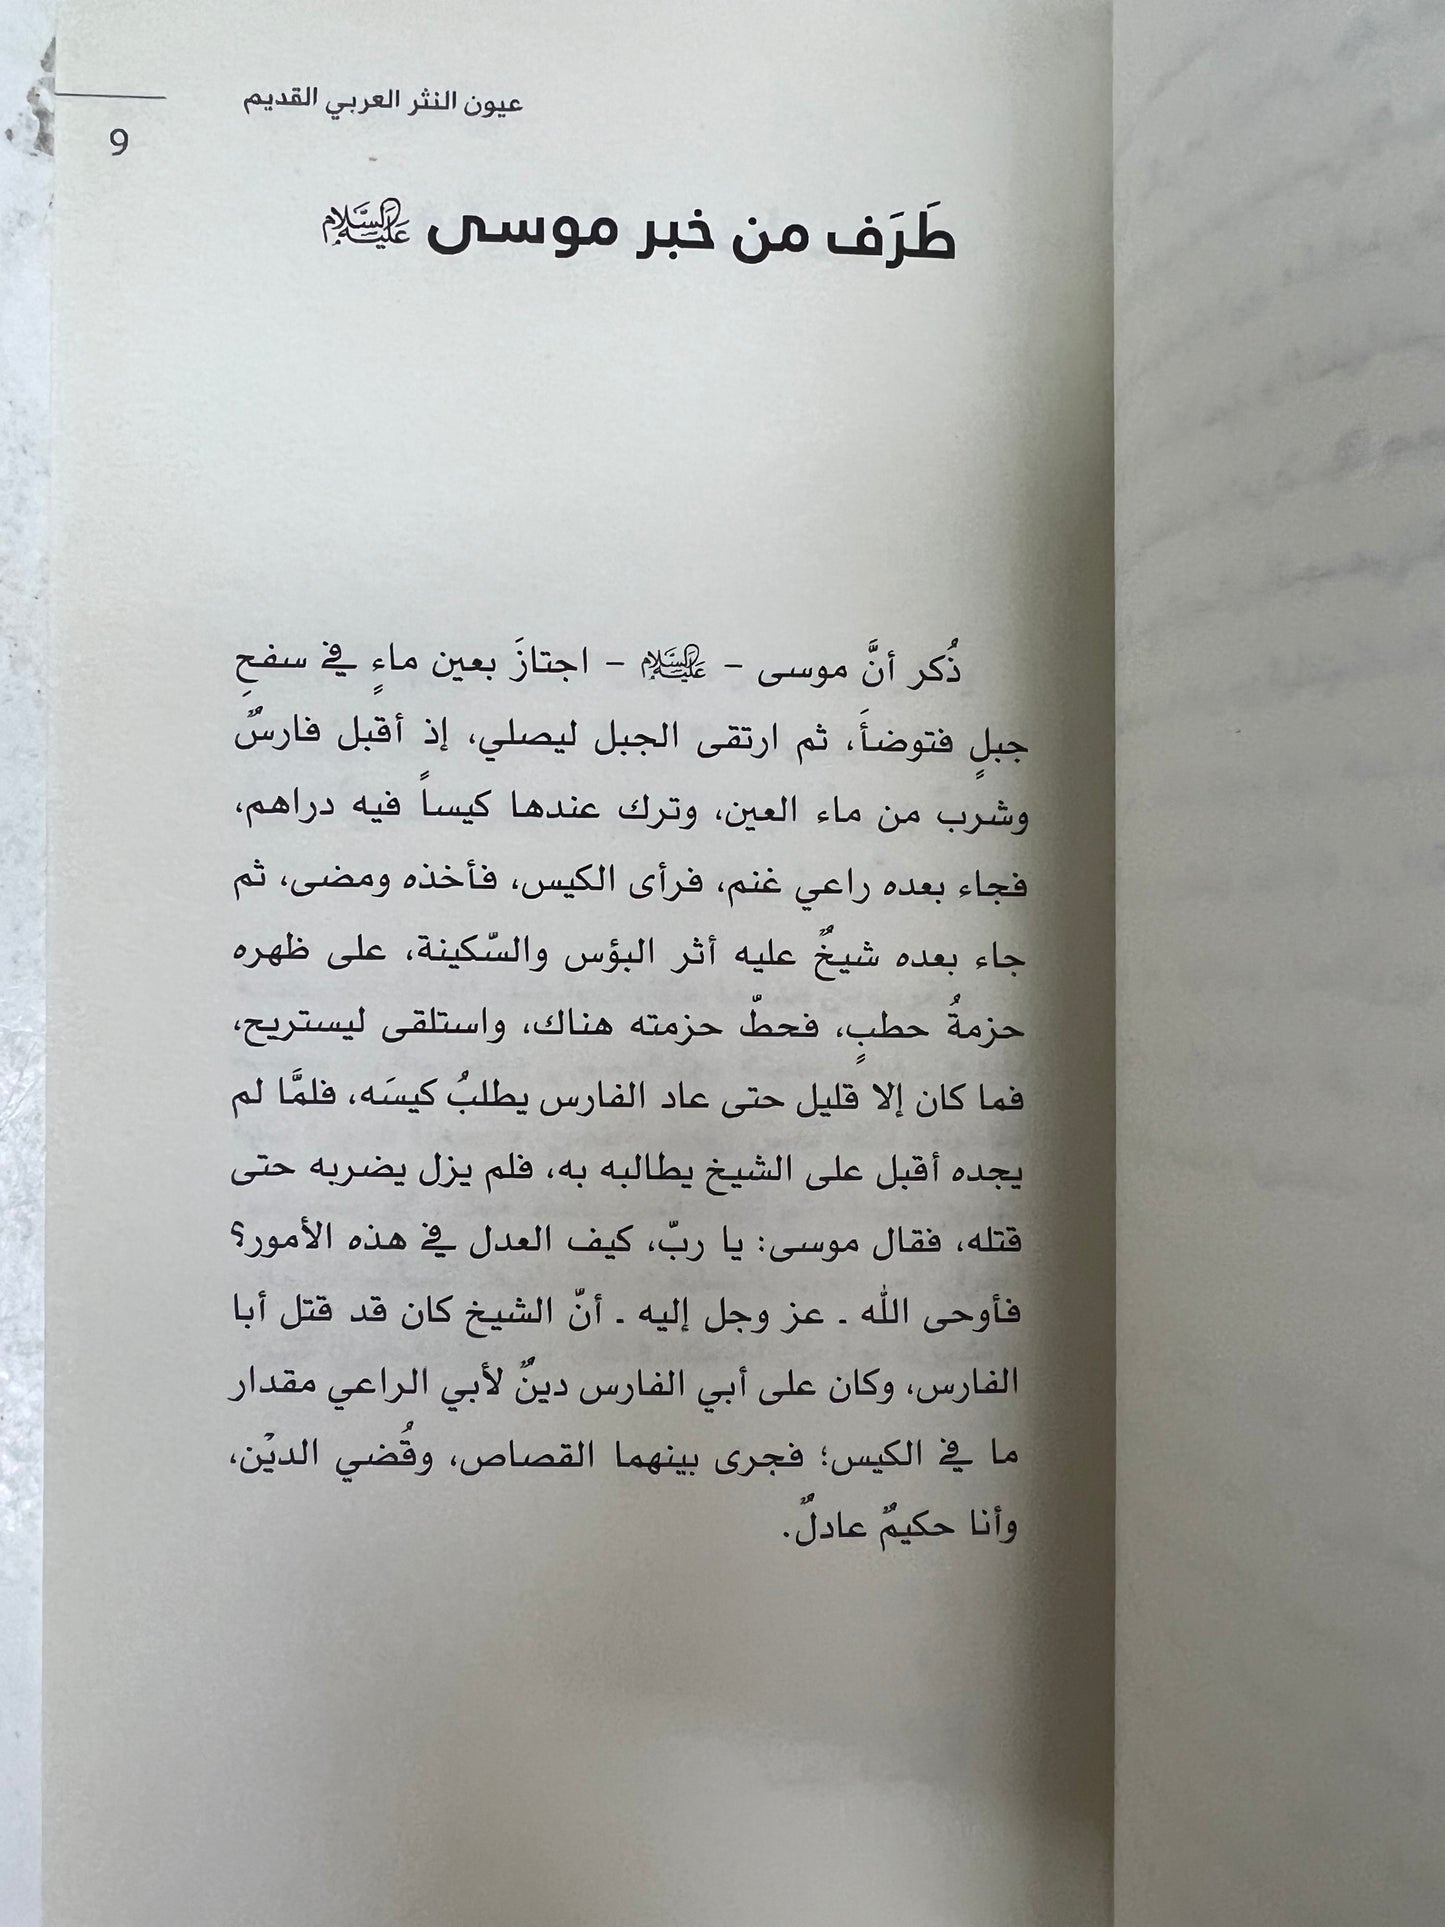 عيون النثر العربي القديم
9
طَرَف من خبر موسى عَلَيهِ السَّلَام
ذُكر أنَّ موسى – عَلَيهِ السَّلَام – اجتازَ بعين ماءٍ في سفحِ
جبلٍ فتوضأَ، ثم ارتقى الجبل ليصلي، إذ أقبل فارسٌ
وشرب من ماء العين، وترك عندها كيساً فيه دراهم،
فجاء بعده راعي غنم، فرأى الكيس، فأخذه ومضى، ثم
جاء بعده شيخٌ عليه أثر البؤس والسّكينة، على ظهره
حزمةُ حطبٍ، فحطّ حزمته هناك، واستلقى ليستريح،
فما كان إلا قليل حتى عاد الفارس يطلبُ كيسَه، فلمَّا لم
يجده أقبل على الشيخ يطالبه به، فلم يزل يضربه حتى
قتله، فقال موسى: يا ربّ، كيف العدل في هذه الأمور؟
فأوحى الله ـ عز وجل إليه ـ أنّ الشيخ كان قد قتل أبا
الفارس، وكان على أبي الفارس دينٌ لأبي الراعي مقدار
ما في الكيس؛ فجرى بينهما القصاص، وقُضي الديْن،
وأنا حكيمٌ عادلٌ.